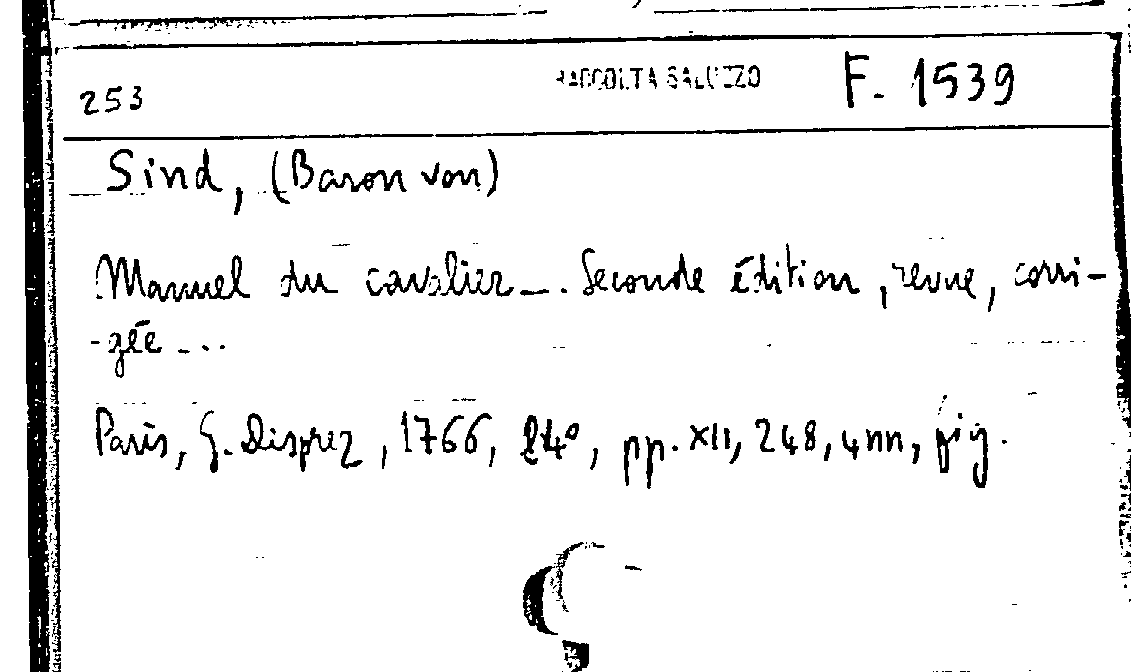 253 RACCOLTA SALUZZO F. 1539
Sind, (Baron von)
Manuel du cavalier_. Seconde édition, revue, corri-
-gée _...
Paris, G. Disprez, 1766, 24°, pp. XII, 248, 4nn, fig.